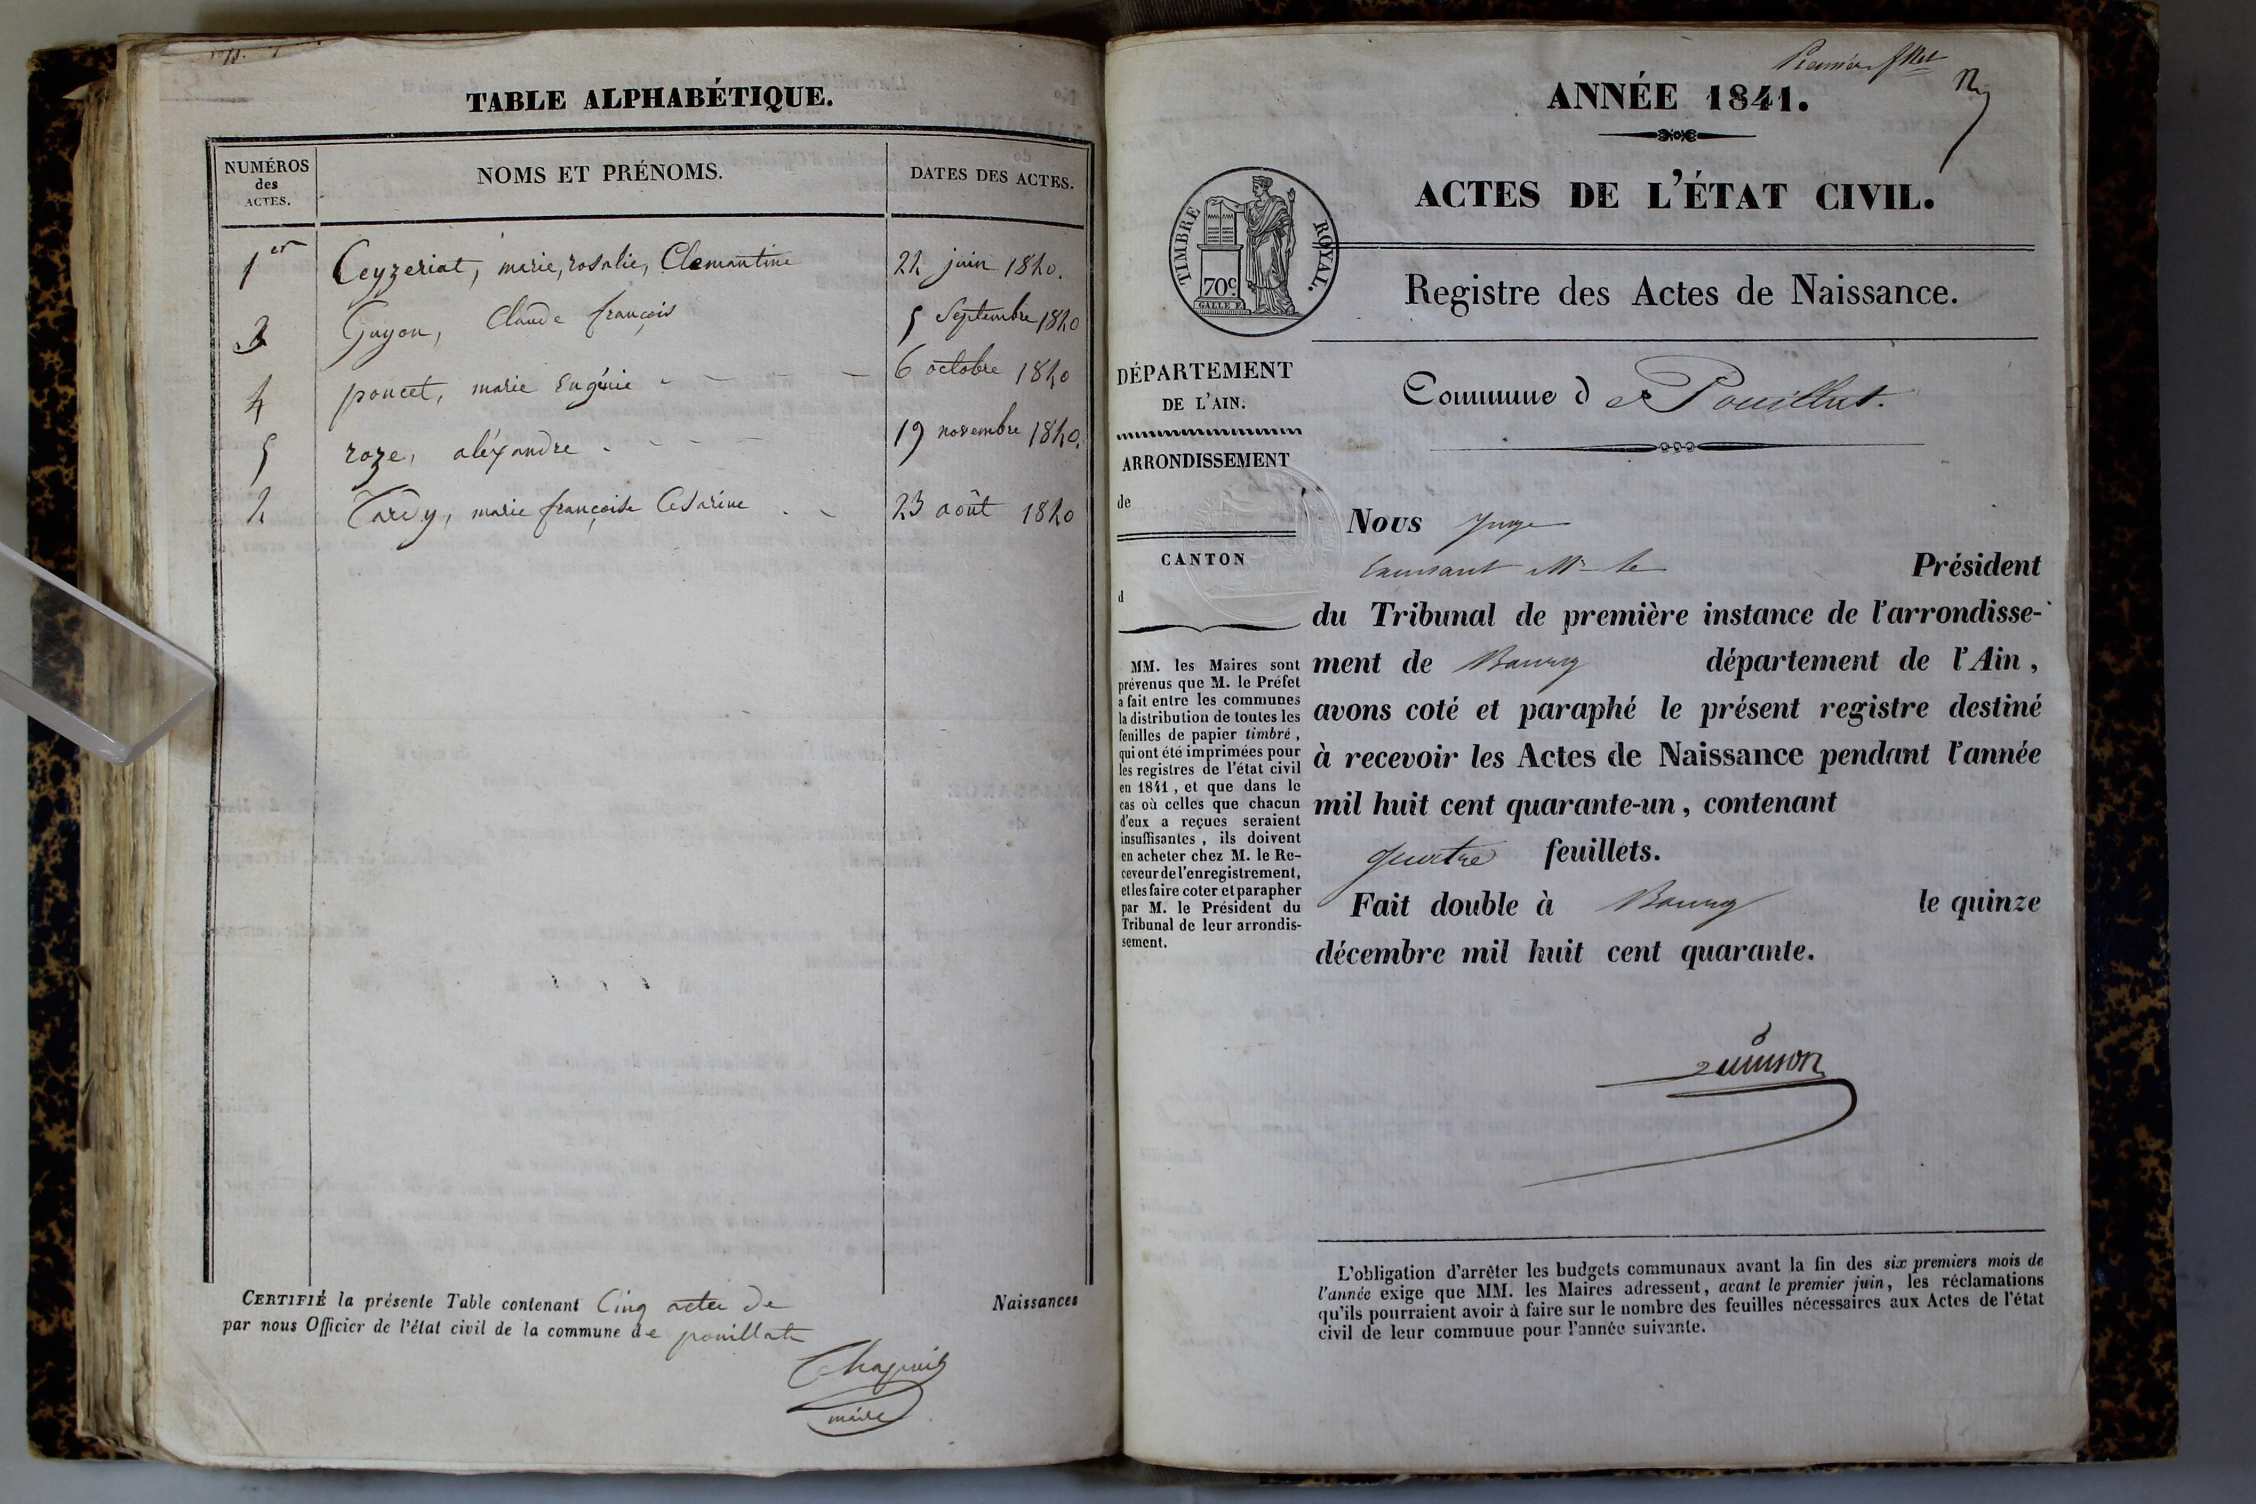 TABLE ALPHABÉTIQUE.
NUMÉROS
des
ACTES.
NOMS ET PRÉNOMS.
DATES DES ACTES.
1er Ceyzeriat, marie, rosalie, Clemantine 22 juin 1840.
3 Guyon, Claude françois 5 Septembre 1840
4 poncet, marie Eugénie 6 octobre 1840
5 roze, aléxandre 19 novembre 1840.
2 Tardy, marie françoise Césarine 23 août 1840
CERTIFIÉ la présente Table contenant Cinq actes de Naissances
par nous Officier de l'état civil de la commune de pouillat
Chapuis
maire
Premier
ANNÉE 1841.
ACTES DE L'ÉTAT CIVIL.
TIMBRE ROYAL.
70c.
GALLE F.
Registre des Actes de Naissance.
DÉPARTEMENT
DE L'AIN.
ARRONDISSEMENT
de
CANTON
d
MM. les Maires sont
prévenus que M. le Préfet
a fait entre les communes
la distribution de toutes les
feuilles de papier timbré,
qui ont été imprimées pour
les registres de l'état civil
en 1841, et que dans le
cas où celles que chacun
d'eux a reçues seraient
insuffisantes, ils doivent
en acheter chez M. le Re-
ceveur de l'enregistrement,
et les faire coter et parapher
par M. le Président du
Tribunal de leur arrondis-
sement.
Commune de Pouillat.
Nous Juge
Mr le Président
du Tribunal de première instance de l'arrondisse-
ment de Bourg département de l'Ain,
avons coté et paraphé le présent registre destiné
à recevoir les Actes de Naissance pendant l'année
mil huit cent quarante-un, contenant
quatre feuillets.
Fait double à Bourg le quinze
décembre mil huit cent quarante.
Quinson
L'obligation d'arrêter les budgets communaux avant la fin des six premiers mois de
l'année exige que MM. les Maires adressent, avant le premier juin, les réclamations
qu'ils pourraient avoir à faire sur le nombre des feuilles nécessaires aux Actes de l'état
civil de leur commune pour l'année suivante.